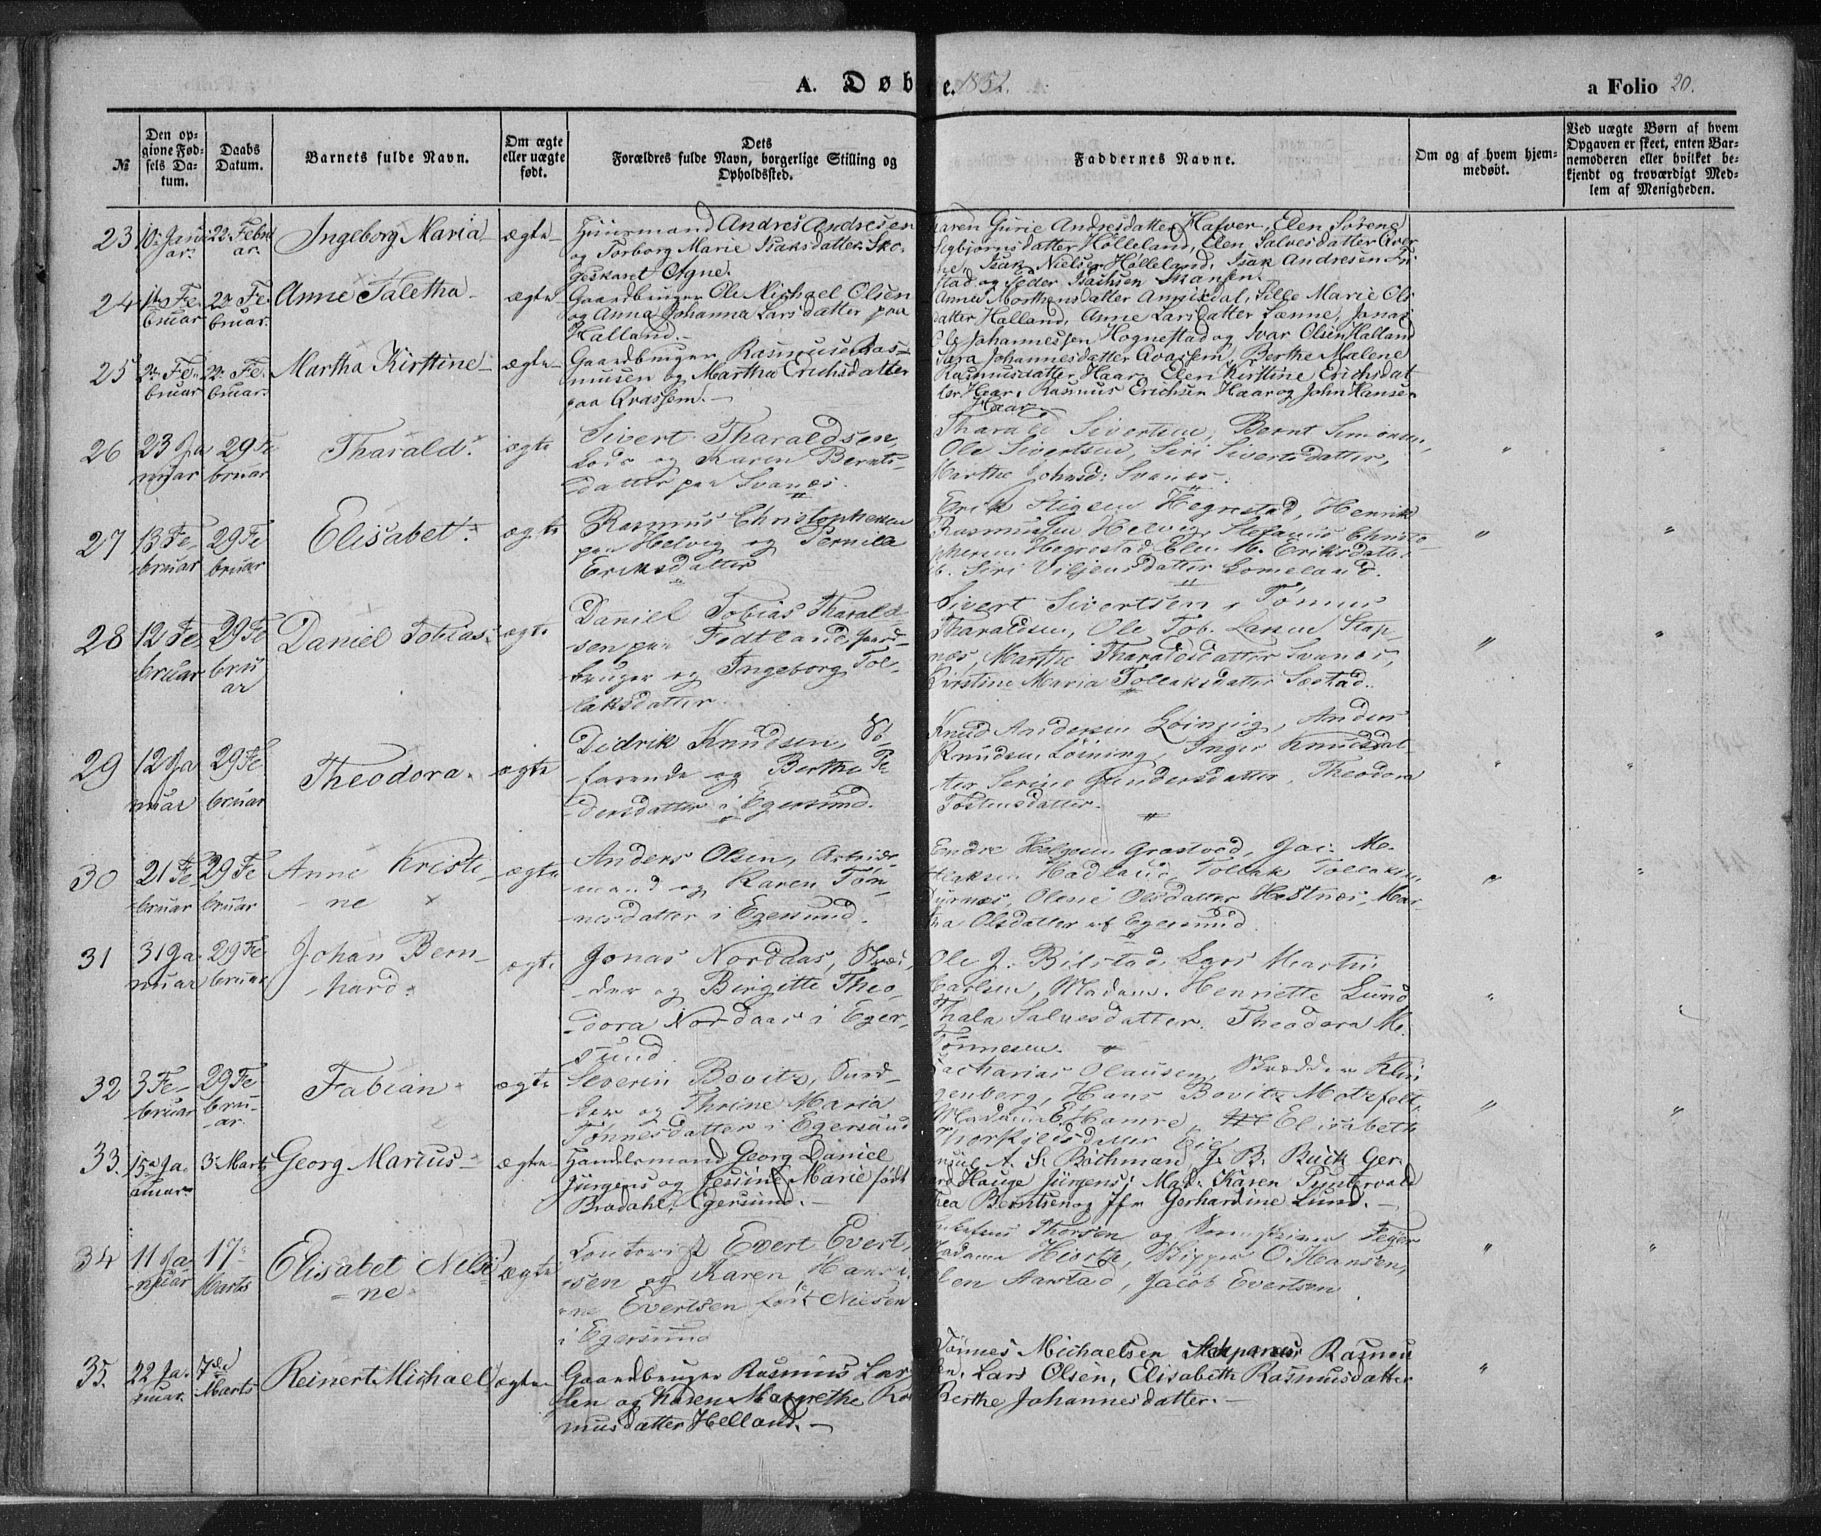 A. Døbte. 1852.
a Folio 20.
№
Den opgivne Fødsels Datum.
Daabs Datum.
Barnets fulde Navn.
Om ægte eller uægte født.
Dets Forældres fulde Navn, borgerlige Stilling og Opholdssted.
Faddernes Navne.
Om og af hvem hjemmedøbt.
Ved uægte Børn af hvem Opgaven er skeet, enten Barnemoderen eller hvilket bekjendt og troværdigt Medlem af Menigheden.
23 10 Janu 22 Febru Ingeborg Maria ægte Huusmand Andres Andresen
ar. ar. og Torborg Marie Isaksdatter Sko-
geskaret Ogne.
Karen Gurie Andresdatter Hafver, Elen Sørene
Segbjørnsdatter Hølleland, Elen Salvesdatter
Isak Nielsen Hølleland, Isak Andresen
stad og Peder Isachsen Skansen.
24 Fe 22 Fe Anne Taletha ægte Gaardbruger Ole Michael Olsen
bruar bruar. og Anna Johanna Larsdatter paa
Halland.
Anne Morthensdatter Tille Marie Ols
datter Halland, Anne Larsdatter Jonas
Johannessen Hognestad og Ivar Olsen Halland
25 Fe 22 Fe. Martha Kirstine ægte Gaardbruger Rasmus Ras-
bruar bruar. musen og Martha Erichsdatter
paa Qvassem.
Sara Johannesdatter Qvassem, Berthe Malene
Rasmusdatter Haar, Elen Kirstine Erichsdat
ter Haar, Rasmus Erichsen Haar og John Hansen
Haar
26 23 Ja 29 Fe Tharald. ægte Sivert Tharaldsen
nuar bruar Lods og Karen Bernts-
datter paa Svanes.
Tharald Sivertsen, Bernt Simonsen,
Ole Sivertsen, Siri Sivertsdatter,
Marthe Johnsd: Svanes.
27 13 Fe- 29 Fe Elisabet. ægte Rasmus Christophersen
bruar bruar paa Helvig og Pernille
Eriksdatter
Erik Stigsen Hegrestad, Henrik
Rasmussen Helvig, Stefanus Christo
phersen Hegrestad Elen M. Eriksdatter
ib. Siri Viljensdatter Lomeland.
28 12 Fe 29 Fe Daniel Tobias ægte Daniel Tobias Tharald-
bruar bru sen paa Fodtland, Gaard-
ar bruger og Ingeborg Tol-
laksdatter
Sivert Sivertsen, Tønnes
Tharaldsen, Ole Tob. Larsen Stap-
næs, Marthe Tharaldsdatter Svanes,
Kirstine Maria Tollaksdatter Sæstad.
29 12 Ja 29 Fe Theodora. ægte Didrik Knudsen, Sø-
nuar bruar farende og Berthe Pe-
dersdatter i Egersund.
Knud Andersen Løining, Anders
Knudsen Løining, Inger Knudsdat
ter, Serine Gundersdatter, Theodora
Tostensdatter.
30 21 Fe 29 Fe Anne Kristi- ægte Anders Olsen, Arbeids-
bruar bruar ne mand og Karen Tøn-
nesdatter i Egersund.
Endre Helgesen Grastved, Jac. Me-
Hadland, Tollak Tollaksen
Olene Olsdatter Hestnes, Mar-
tha Olsdatter af Egersund.
31 31 Ja- 29 Fe Johan Bern- ægte Jonas Norddas, Skræd-
nuar bruar hard. der og Birgitte Theo-
dora Nordaas i Eger-
sund.
Ole J. Bilstad, Lars Martin
Carlsen, Madam Henriette Lund
Thala Salvesdatter. Theodora M.
Tønnesen.
32 3 Fe- 29 Fe Fabian ægte Severin Bovitz, Bund-
bruar bru- der og Thrine Maria
ar. Tønnesdatter i Egersund
Zacharias Olausen, Skrædder Klin
genberg, Hans Bovitz Motzfelt,
Madam E. Hamre, Elisabeth
Thorkjelsdatter Eie
33. 15 Ja- 3 Marts Georg Marius ægte Handelsmand Georg Daniel
nuar Jürgens og Jesine Marie født
Brodahl, Egersund.
A. S. Bøchman J. B. Buck Ger-
hard Hauge Jürgens, Mad: Karen Puntervold
Thea Berntsen og Jfr Gerhardine Lund.
34 11 Ja- 17 Elisabet Neli- ægte Contorist Evert Evert-
nuar Marts ne sen og Karen Hans
ne Evertsen født Nielsen
i Egersund
Thorsen og Feyer
Madam Hiorth, O. Hansen,
Elen Aarstad, Jacob Evertsen.
35. 22 Ja- 7de Reinert Michael ægte Gaardbruger Rasmus Lar
nuar Marts sen og Karen Margrethe Ras
musdatter Helland.
Tønnes Michaelsen Rasmus
sen, Lars Olsen, Elisabeth Rasmusdatter
Berthe Johannesdatter.